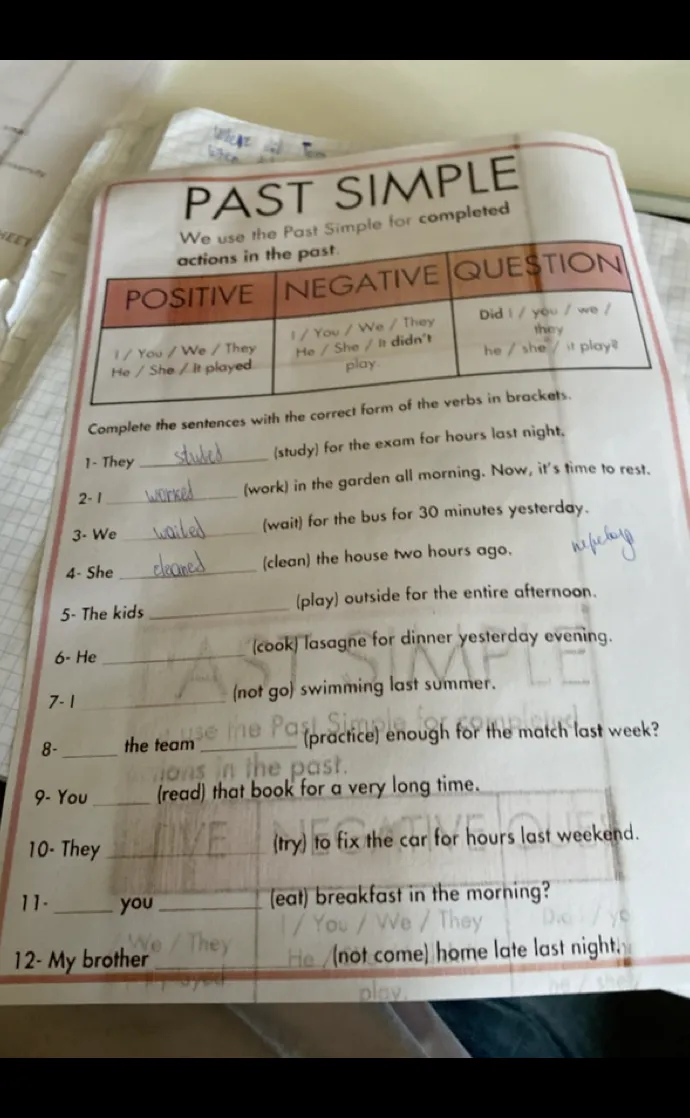 PAST SIMPLE
We use the Past Simple for completed
actions in the past.
POSITIVE NEGATIVE QUESTION
I / You / We / They
He / She / It played
I / You / We / They
He / She / It didn't
play.
Did I / you / we /
they
he / she / it play?
Complete the sentences with the correct form of the verbs in brackets.
1- They studed (study) for the exam for hours last night.
2- I worked (work) in the garden all morning. Now, it's time to rest.
3- We waited (wait) for the bus for 30 minutes yesterday.
4- She cleaned (clean) the house two hours ago.
5- The kids ____________ (play) outside for the entire afternoon.
6- He ____________ (cook) lasagne for dinner yesterday evening.
7- I ____________ (not go) swimming last summer.
8- ______ the team __________ (practice) enough for the match last week?
9- You ______ (read) that book for a very long time.
10- They ____________ (try) to fix the car for hours last weekend.
11- ______ you __________ (eat) breakfast in the morning?
12- My brother ____________ (not come) home late last night.